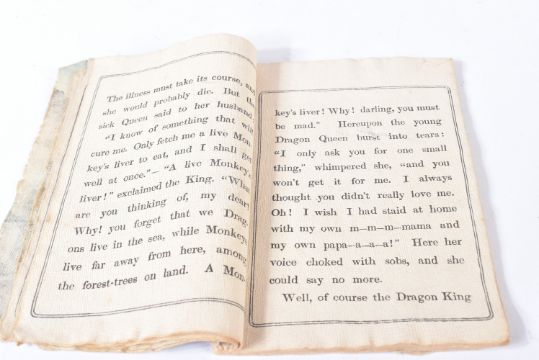 The illness must take its course, and
she would probably die. But the
sick Queen said to her husband
"I know of something that will
cure me. Only fetch me a live Mon-
key's liver to eat, and I shall get
well at once."— "A live Monkey's
liver!" exclaimed the King. "What
are you thinking of, my dear?
Why! you forget that we Drag-
ons live in the sea, while Monkeys
live far away from here, among
the forest-trees on land. A Mon-
key's liver! Why! darling, you must
be mad." Hereupon the young
Dragon Queen burst into tears:
"I only ask you for one small
thing," whimpered she, "and you
won't get it for me. I always
thought you didn't really love me.
Oh! I wish I had staid at home
with my own m—m—m—mama and
my own papa—a—a—a!" Here her
voice choked with sobs, and she
could say no more.
Well, of course the Dragon King